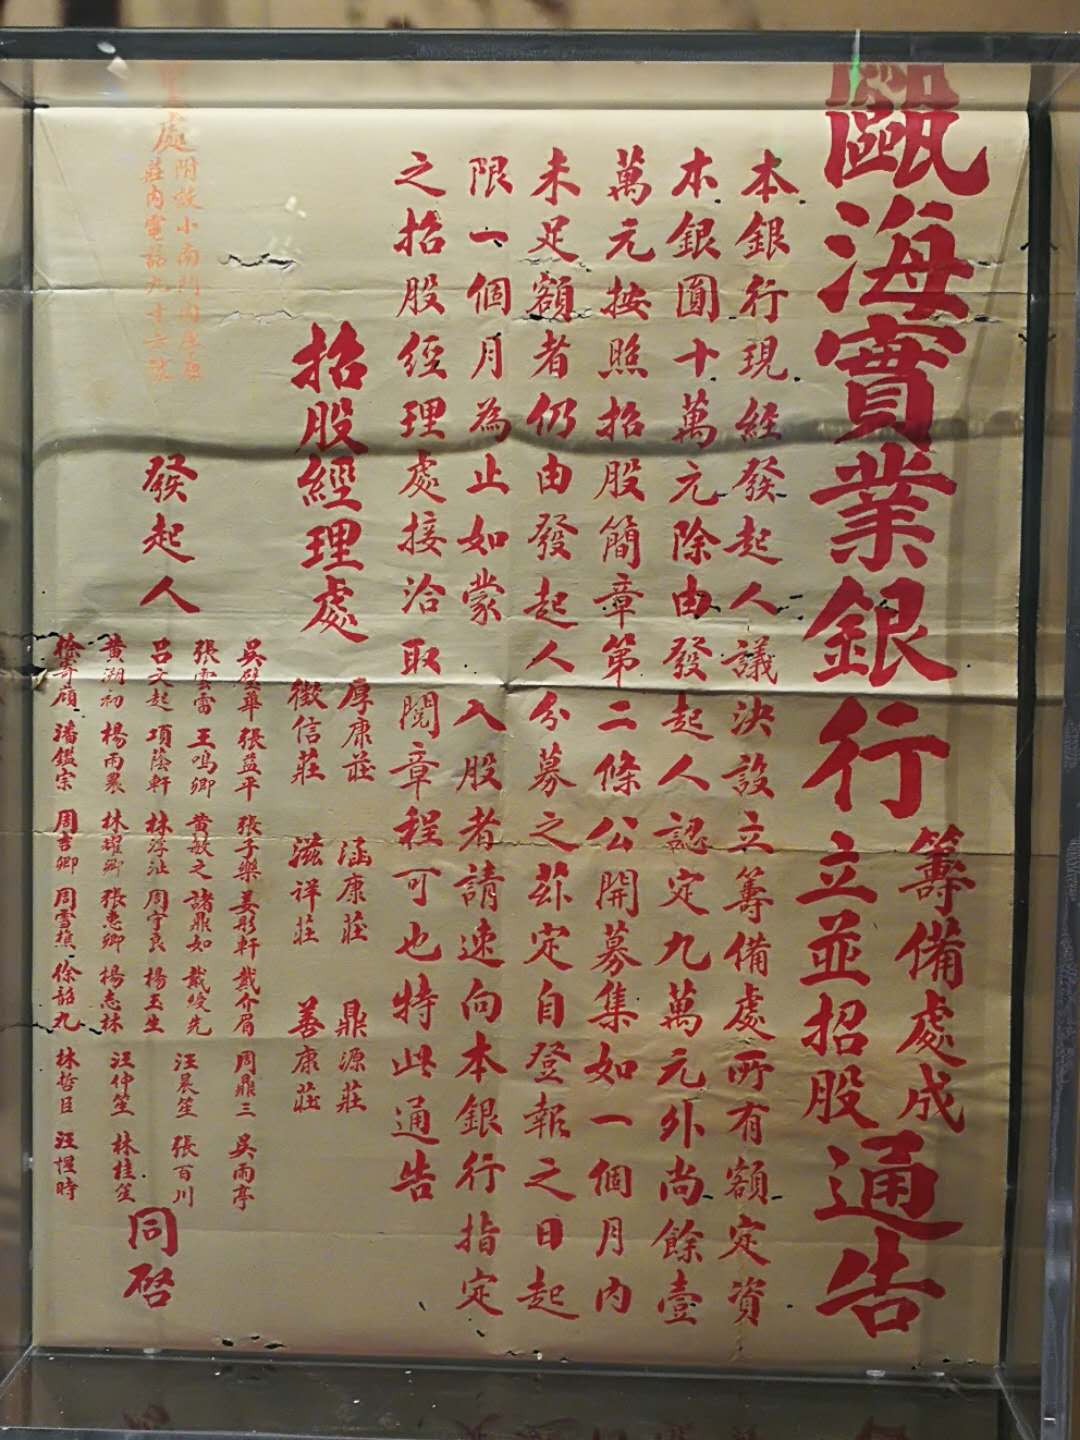 甌海實業銀行籌備處成立並招股通告
本銀行現經發起人議決設立籌備處所有額定資
本銀圓十萬元除由發起人認定九萬元外尚餘壹
萬元按照招股簡章第二條公開募集如一個月內
未足額者仍由發起人分募之茲定自登報之日起
限一個月為止如蒙入股者請速向本銀行指定
之招股經理處接洽取閱章程可也特此通告
招股經理處
厚康莊 涵康莊 鼎源莊
徵信莊 滋祥莊 善康莊
發起人
吳璧華 張益平 張子樂 姜彤軒 戴介眉 周鼎三 吳雨亭
張雲雷 王鳴卿 黃敏之 諸鼎如 戴綬先 汪晨笙 張百川
呂文起 項蔭軒 林浮沚 周守良 楊玉生
黃溯初 楊雨農 林耀卿 張惠卿 楊志林 汪仲笙 林桂笙
徐寄廎 潘鑑宗 周吉卿 周雪 徐韶九 林哲臣 汪惺時
同啓
處
附設小南門
莊內電話九十六號